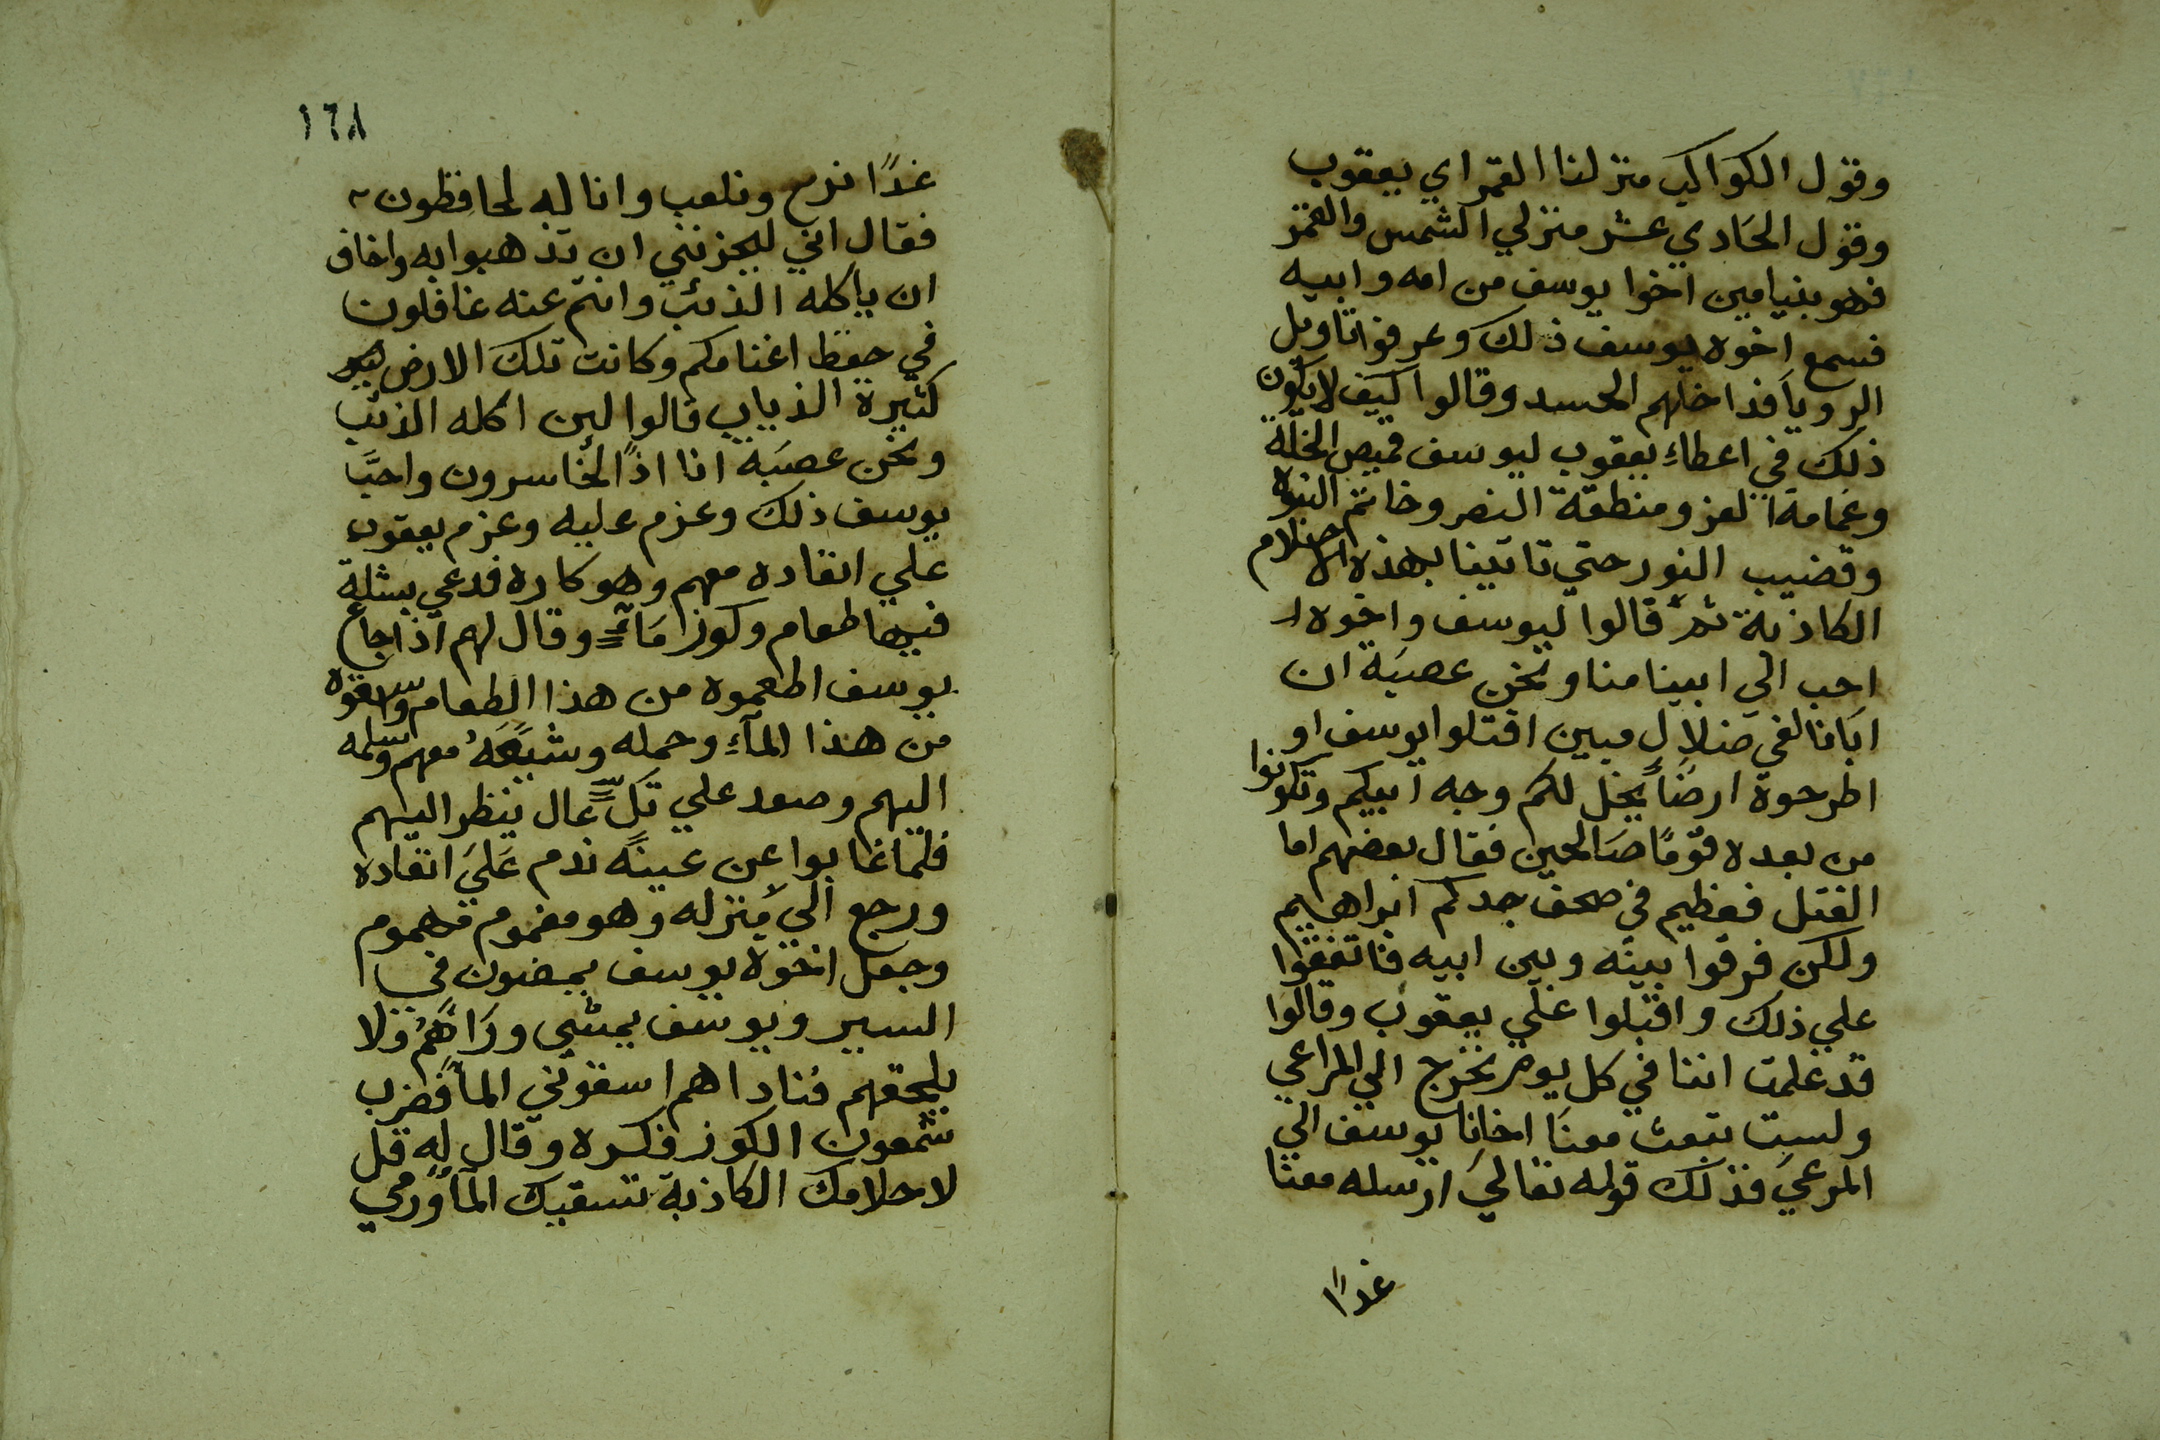 وقول الكواكب منزلنا القمر اي يعقوب
وقول الحادي عشر منزلي الشمس والقمر
فهو بنيامين اخوا يوسف من امه وابيه
فسمع اخوه يوسف ذلك وعرفوا تاويل
الرويا فداخلهم الحسد وقالوا كيف لا يكون
ذلك في اعطاء يعقوب ليوسف قميص الخلة
وعمامة العز ومنطقة النصر وخاتم النبوة
وقضيب النور حتي تاتينا بهذه الاحلام
الكاذبة ثم قالوا ليوسف واخوه
احب الي ابينا منا ونحن عصبة ان
ابانا لفي ضلال مبين اقتلوا يوسف او
اطرحوه ارضاً يخل لكم وجه ابيكم وتكونوا
من بعده قومًا صالحين فقال بعضهم اما
القتل فعظيم في صحف جدكم ابراهيم
ولكن فرقوا بينه وبين ابيه فاتفقوا
علي ذلك واقبلوا علي يعقوب وقالوا
قد علمت اننا في كل يوم نخرج الي المراعي
ولست تبعث معنا اخانا يوسف الي
المرعي فذلك قوله تعالي ارسله معنا
غدًا
١٦٨
غدًا نرتع ونلعب وانا له لحافظون
فقال اني ليحزنني ان تذهبوا به واخاف
ان ياكله الذئب وانتم عنه غافلون
في حفظ اغنامكم وكانت تلك الارض
كثيرة الذياب قالوا لين اكله الذئب
ونحن عصبة انا اذًا لخاسرون واحبَّ
يوسف ذلك وعزم عليه وعزم يعقوب
علي انفاده معهم وهو كاره فدعي بسلة
فيها طعام وكوز ماءٍ وقال لهم اذا جاع
يوسف اطعموه من هذا الطعام واسقوه
من هذا الماء وحمله وشيعه معهم وسلمه
اليهم وصعد علي تلٍّ عال ينظر اليهم
فلما غابوا عن عينه ندم علي انفاده
ورجع الي منزله وهو مغموم مهموم
وجعل اخوة يوسف يمضون في
السير ويوسف يمشي وراهم ولا
يلحقهم فناداهم اسقوني الما فضرب
شمعون الكوز فكسره وقال له قل
لاحلامك الكاذبة تسقيك الما ورمي